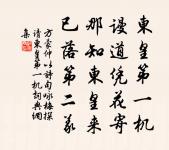 東皇第一机
謾道花寄
那知東皇来
已落第二義
方蒙仲以詩句咏梅探
請東皇第一机詞典網
集